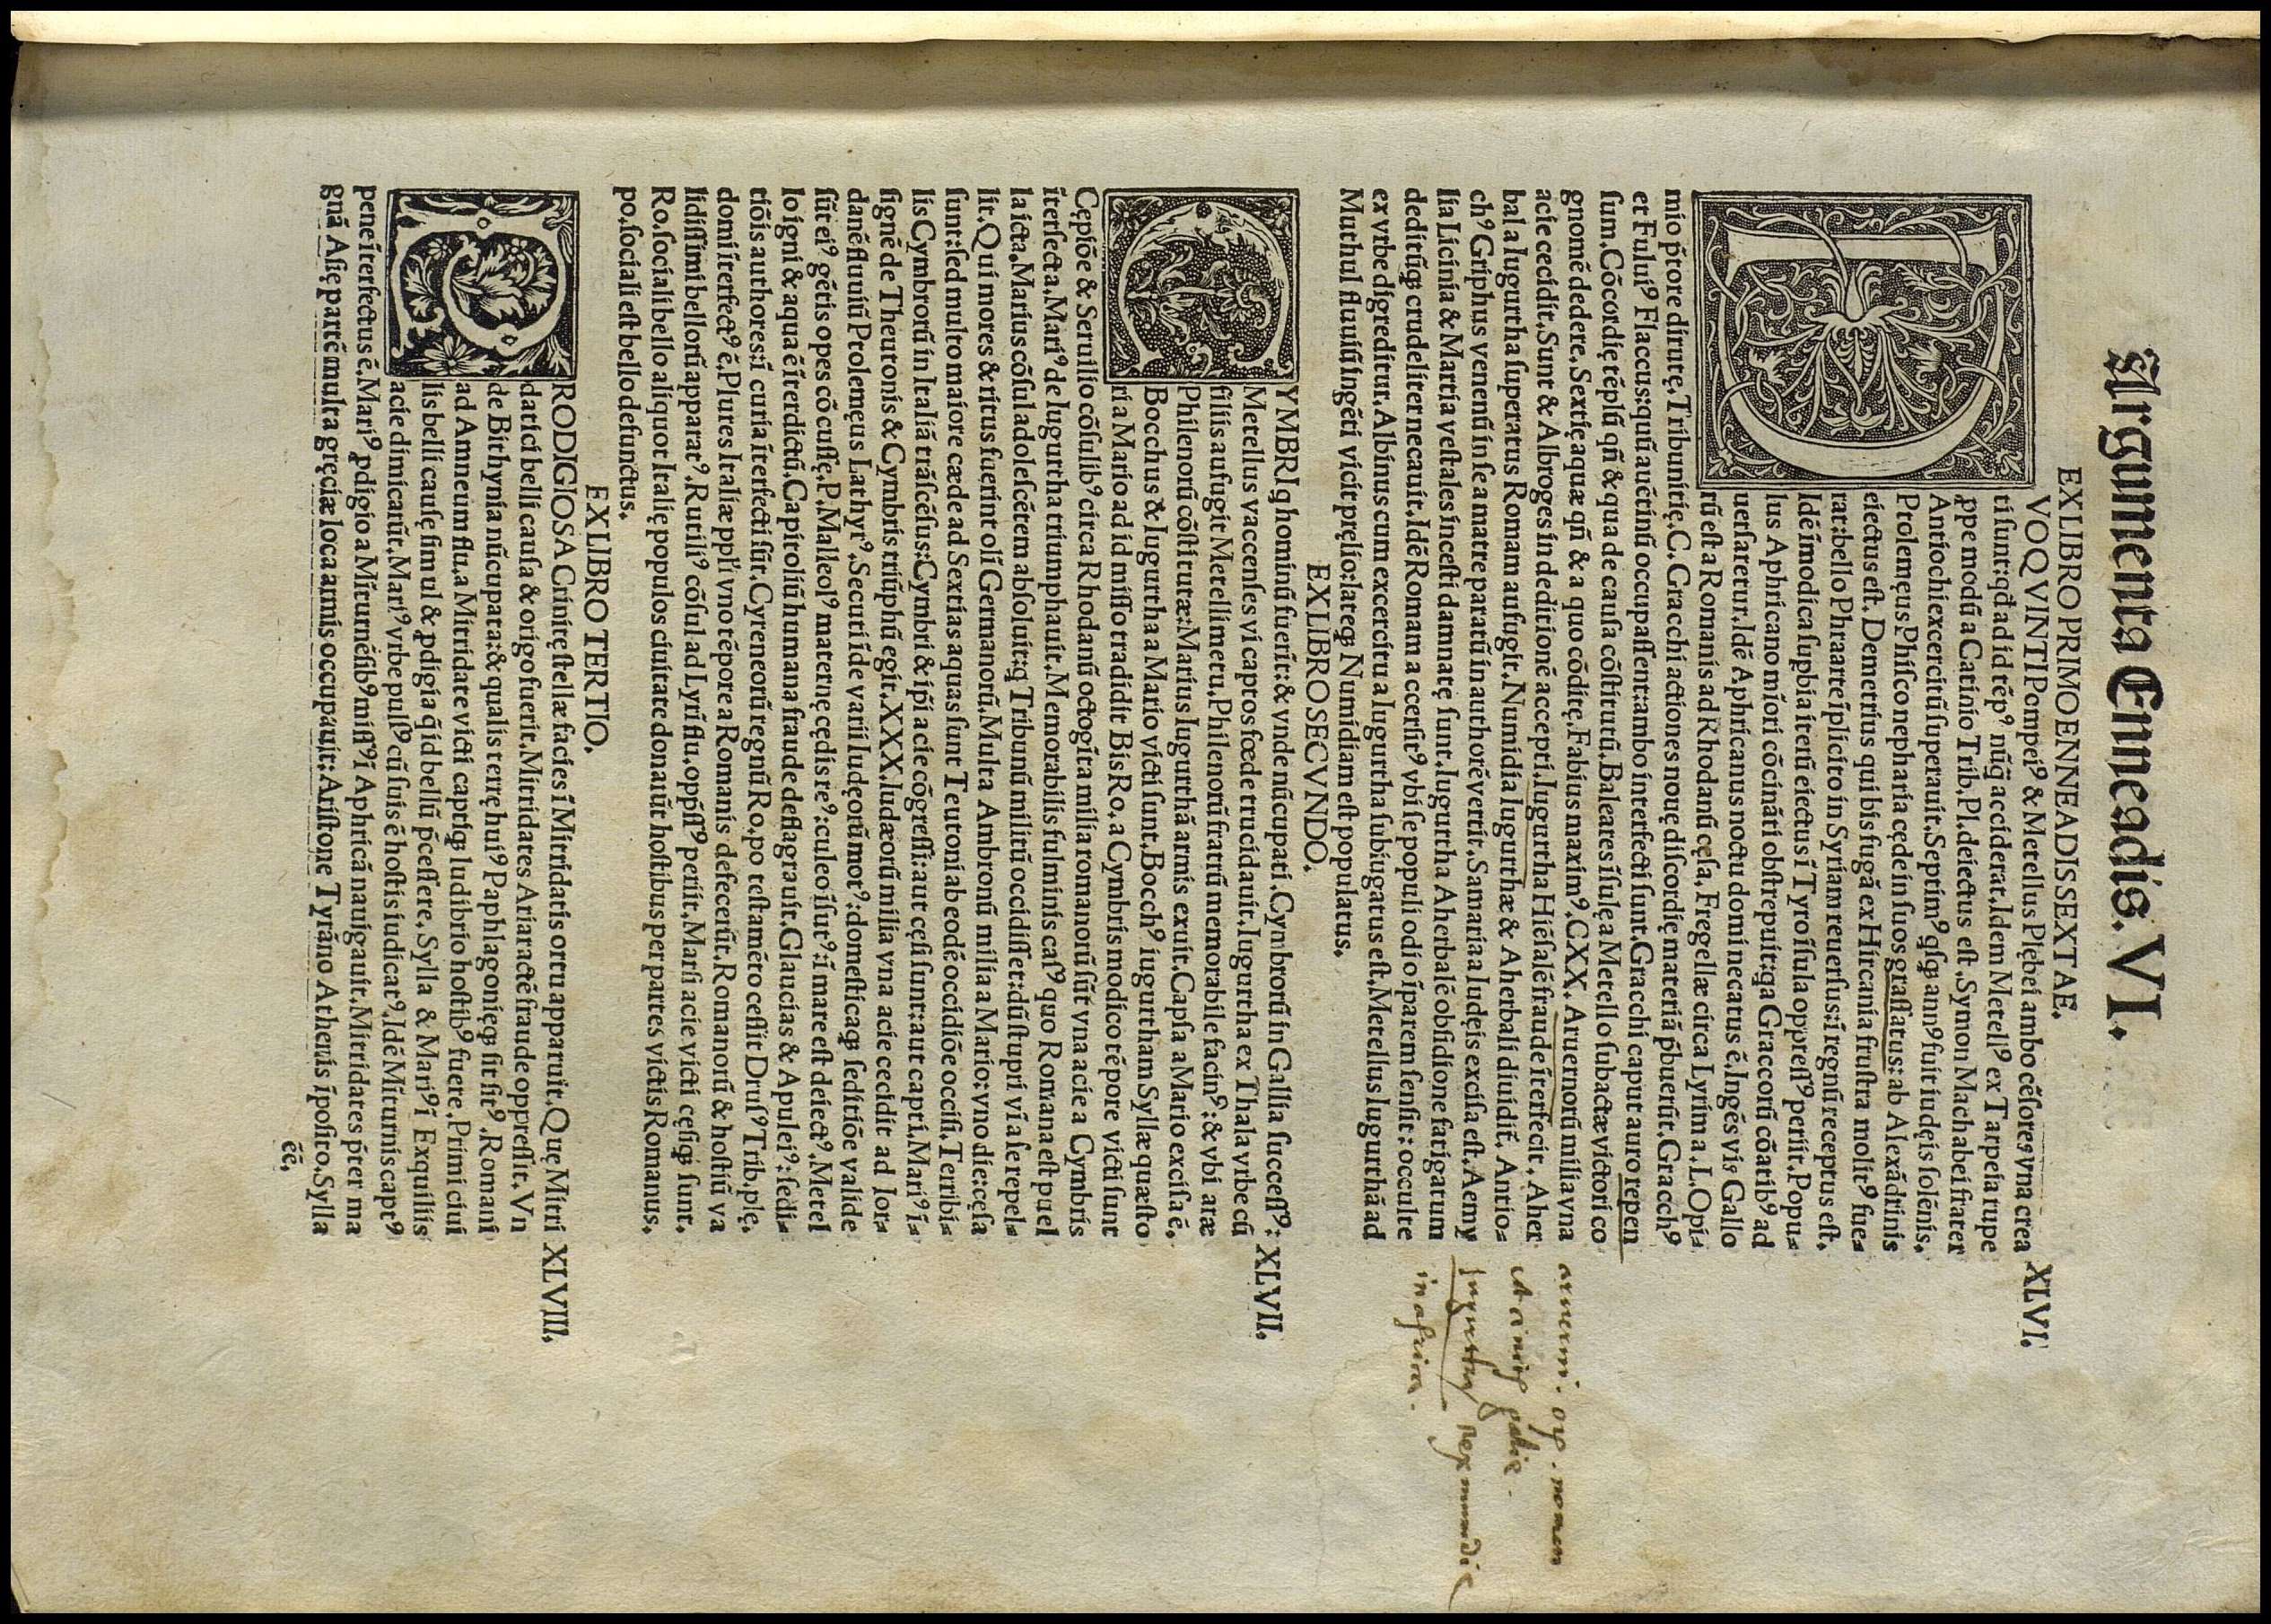 Argumenta Enneadis. VI.
EX LIBRO PRIMO ENNEADIS SEXTAE.
VOQVINTI Pompei⁹ & Metellus Plębei ambo cẽſores vna crea XLVI.
ti ſunt: qđ ad id tẽp⁹ nũq̃ acciderat. Idem Metell⁹ ex Tarpeia rupe
ꝓpe modũ a Catinio Trib. Pl. deiectus eſt. Symon Machabei frater
Antiochi excercitũ ſuperauit. Septim⁹ qſqꝫ ann⁹ fuit iudęis ſolẽnis.
Ptolemęus Phiſco nepharia cęde in ſuos graſſatus: ab Alexãdrinis
eiectus eſt. Demetrius qui bis fugã ex Hircania fruſtra molit⁹ fue⸗
rat: bello Phraarte ĩplicito in Syriam reuerſus: ĩ regnũ receptus eſt.
Idẽ ĩmodica ſuꝑbia iterũ eiectus ĩ Tyro ĩſula oppreſſ⁹ periit. Popu⸗
lus Aphricano mĩori cõcinãti obſtrepuit: qa Graccorũ cõatib⁹ ad
uerſaretur. Idẽ Aphricanus noctu domi necatus ẽ. Ingẽs vis Gallo
rũ eſt a Romanis ad Rhodanũ cęſa. Fregellæ circa Lyrim a. L. Opi⸗
mio p̃tore dirutę. Tribunitię. C. Gracchi actiones nouę diſcordię materiã p̃buerũt. Gracch⁹
et Fului⁹ Flaccus: quũ auẽtinũ occupaſſent: ambo interfecti ſunt. Gracchi caput auro repen
ſum. Cõcordię tẽplũ qñ & qua de cauſa cõſtitutũ. Baleares iſulę a Metello ſubactæ victori co
gnomẽ dedere. Sextię aquæ qñ & a quo cõditę. Fabius maxim⁹. CXX. Aruernorũ milia vna
acie cecidit. Sunt & Albroges in deditionẽ accepti. Iugurtha Hiẽſalẽ fraude ĩterfecit. Aher
bal a Iugurtha ſuperatus Romam aufugit. Numidia Iugurthæ & Aherbali diuidit̃. Antio⸗
ch⁹ Griphus venenũ in ſe a matre paratũ in authorẽ vertit. Samaria a Iudęis exciſa eſt. Aemy
lia Licinia & Martia veſtales inceſti damnatę ſunt. Iugurtha Aherbalẽ obſidione fatigatum
deditũqꝫ crudeliter necauit. Idẽ Romam accerſit⁹ vbi ſe populi odio ĩparem ſenſit: occulte
ex vrbe digreditur. Albinus cum excercitu a Iugurtha ſubiugatus eſt. Metellus Iugurthã ad
Muthul fluuiũ ĩngẽti vicit pręlio: lateqꝫ Numidiam eſt populatus.
EX LIBRO SECVNDO.
YMBRI q hominũ fuerĩt: & vnde nũcupati. Cymbrorũ in Gallia ſucceſſ⁹: XLVII.
Metellus vaccenſes vi captos fœde trucidauit. Iugurtha ex Thala vrbe cũ
filiis aufugit Metelli metu. Philenorũ fratrũ memorabile facin⁹: & vbi aræ
Philenorũ cõſtitutæ: Marius Iugurthã armis exuit. Capſa a Mario exciſa ẽ.
Bocchus & Iugurtha a Mario victi ſunt. Bocch⁹ iugurtham Syllæ quæſto
ria Mario ad id miſſo tradidit Bis Ro. a Cymbris modico tẽpore victi ſunt
Cępiõe & Seruilio cõſulib⁹ circa Rhodanũ octogĩta milia romanorũ ſũt vna acie a Cymbris
ĩterfecta. Mari⁹ de Iugurtha triumphauit. Memorabilis fulminis caſ⁹ quo Romana eſt puel
la icta. Marius cõſul adoleſcẽtem abſoluit: q Tribunũ militũ occidiſſet: dũ ſtupri vĩ a ſe repel⸗
lit. Qui mores & ritus fuerint olĩ Germanorũ. Multa Ambronũ milia a Mario: vno die: cęſa
ſunt: ſed multo maiore cæde ad Sextias aquas ſunt Teutoni ab eodẽ occidiõe occiſi. Terribi⸗
lis Cymbrorũ in Italiã trãſcẽſus: Cymbri & ip̃i acie cõgreſſi: aut cęſi ſunt: aut capti. Mari⁹ ĩ⸗
ſignẽ de Theutonis & Cymbris triũphũ egit. XXX. Iudæorũ milia vna acie cecidit ad Ior⸗
danẽ fluuiũ Ptolemęus Lathyr⁹. Secuti ĩde varii Iudęorũ mot⁹: domeſticaqꝫ ſeditiõe valide
ſũt ei⁹ gẽtis opes cõcuſſę. P. Malleol⁹ maternę cędis re⁹: culeo iſut⁹: ĩ mare eſt deiect⁹. Metel
lo igni & aqua ẽ ĩterdictũ. Capitoliũ humana fraude deflagrauit. Glaucias & Apulei⁹: ſedi⸗
tiõis authores: ĩ curia ĩterfecti ſũt. Cyreneorũ regnũ Ro. po teſtamẽto ceſſit Druſ⁹ Trib. plę.
domi ĩterfect⁹ ẽ. Plures Italiæ ppľi vno tẽpore a Romanis defecerũt. Romanorũ & hoſtiũ va
lidiſſimi bellorũ apparat⁹. Rutili⁹ cõſul ad Lyrĩ flu. opp̃ſſ⁹ periit. Marſi acie victi cęſiqꝫ ſunt.
Ro. ſociali bello aliquot Italię populos ciuitate donarũt hoſtibus per partes victis Romanus.
po. ſociali eſt bello defunctus.
EX LIBRO TERTIO.
RODIGIOSA Crinitę ſtellæ facies ĩ Mitridatis ortu apparuit. Quę Mitri XLVIII.
datici belli cauſa & origo fuerit. Mitridates Ariaractẽ fraude oppreſſit. Vn
de Bithynia nũcupata: & qualis terrę hui⁹ Paphlagonięqꝫ ſit ſit⁹. Romani
ad Amneum flu. a Mitridate victi captiqꝫ ludibrio hoſtib⁹ fuere. Primi ciui
lis belli cauſę ſimul & ꝓdigia q̃ id bellũ p̃ceſſere. Sylla & Mari⁹ ĩ Exquiliis
acie dimicarũt. Mari⁹ vrbe pulſ⁹ cũ ſuis ẽ hoſtis iudicat⁹. Idẽ Mĩturnis capt⁹
pene ĩterfectus ẽ. Mari⁹ ꝓdigio a Mĩturnẽſib⁹ miſſ⁹ ĩ Aphricã nauigauit. Mitridates p̃ter ma
gnã Aſię partẽ multa gręciæ loca armis occupauit: Ariſtone Tyrãno Athenis ĩpoſito. Sylla
ẽẽ.
aruerni. op. nomen
galie.
Iugurtha rex numidie
in africa.